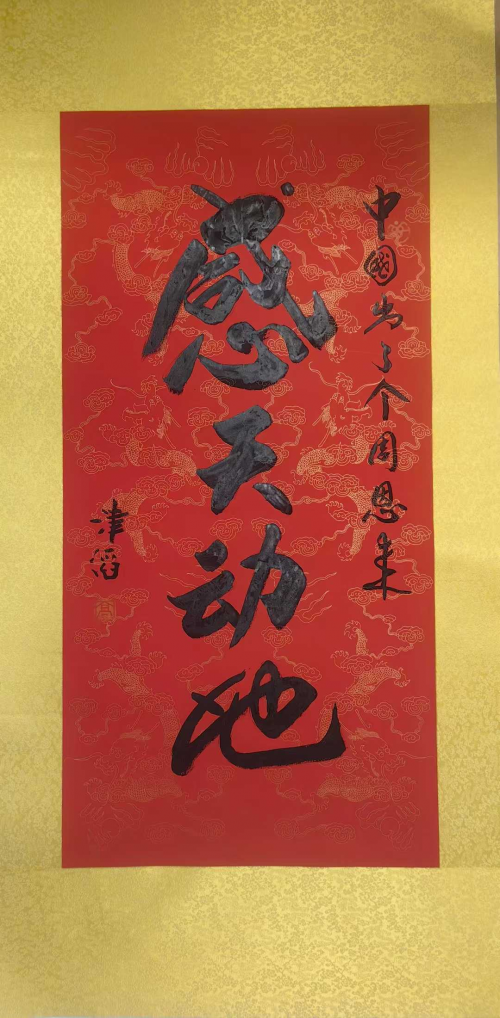 中国出了个周恩来
感天动地
津滔